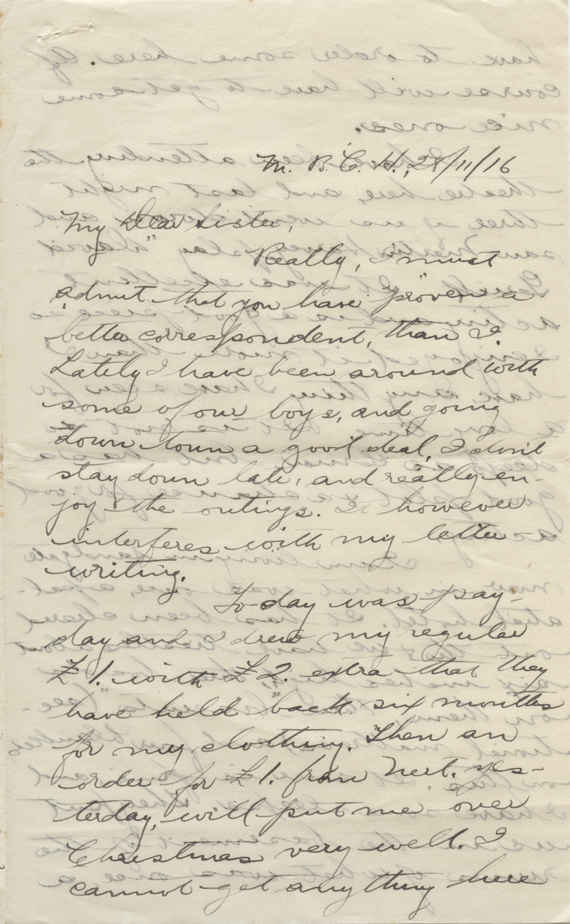 M. B. C. H., 28/11/16
My Dear Sister,
Really, I must
admit that you have proven a
better correspondent, than I.
Lately I have been around with
some of our boys, and going
down town a good deal, I don't
stay down late, and really en-
joy the outings. It however
interferes with my letter
writing.
To-day was pay-
day and I drew my regular
£1. with £2. extra that they
have held back six months
for my clothing. Then an
order for £1. from Nert. yes-
terday, will put me over
Christmas very well. I
cannot get anything here